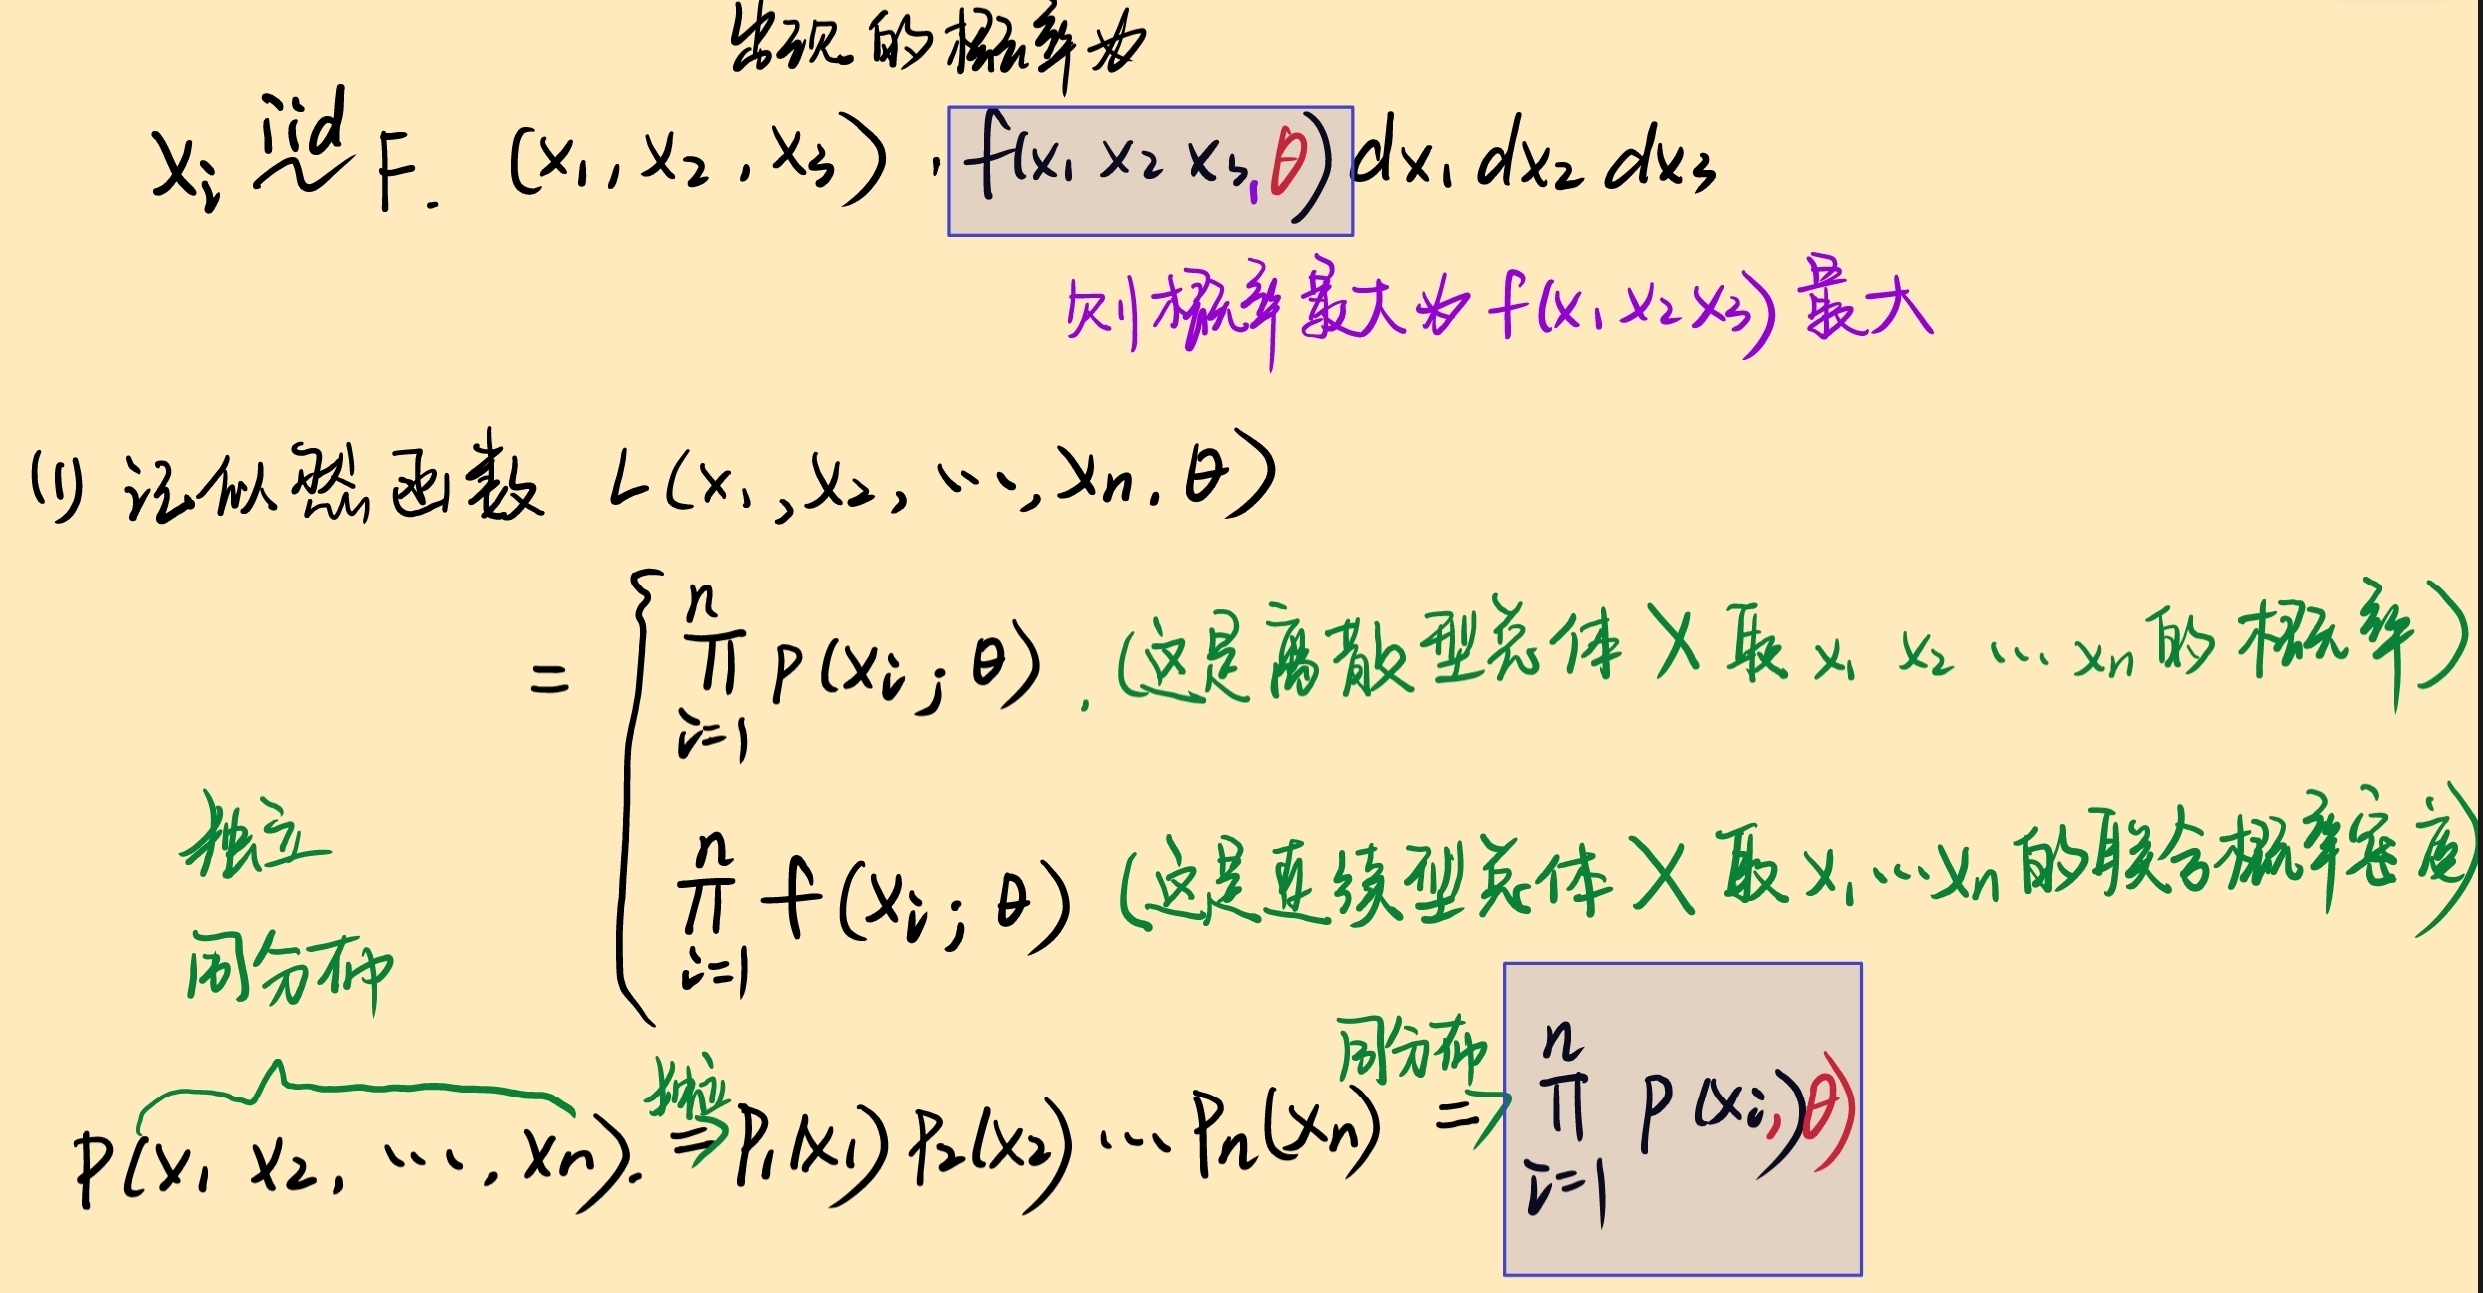 出现的概率为
Xi iid~ F. (x₁, x₂, x₃), f(x₁ x₂ x₃, θ) dx₁ dx₂ dx₃
则概率最大为 f(x₁ x₂ x₃) 最大
(1) 记似然函数 L(x₁, x₂, ..., xn, θ)
= { ∏(i=1→n) p(xi; θ). (这是离散型总体 X 取 x₁ x₂ ... xn 的概率)
∏(i=1→n) f(xi; θ) (这是连续型总体 X 取 x₁...xn 的联合概率密度)
独立
同分布
独立 同分布
P(x₁ x₂, ..., xn). ⇒ P₁(x₁) P₂(x₂) ... Pn(xn) ⇒ ∏(i=1→n) p(xi; θ)